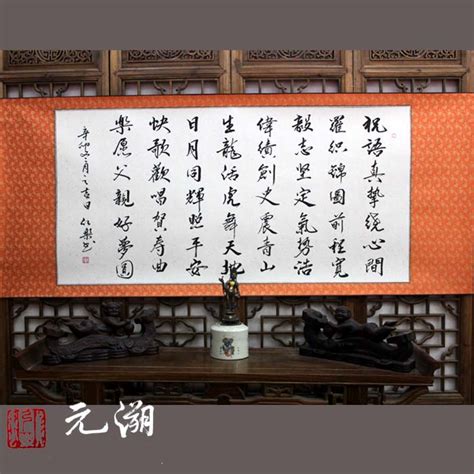 祝語真摯繞心間
羅织錦圖前程寬
毅志坚定氣勢浩
偉績創史震青山
生龍活虎舞天地
日月同輝照平安
快歌歡唱賀寿曲
樂愿父親好夢圓
辛卯六月之吉日
元溯